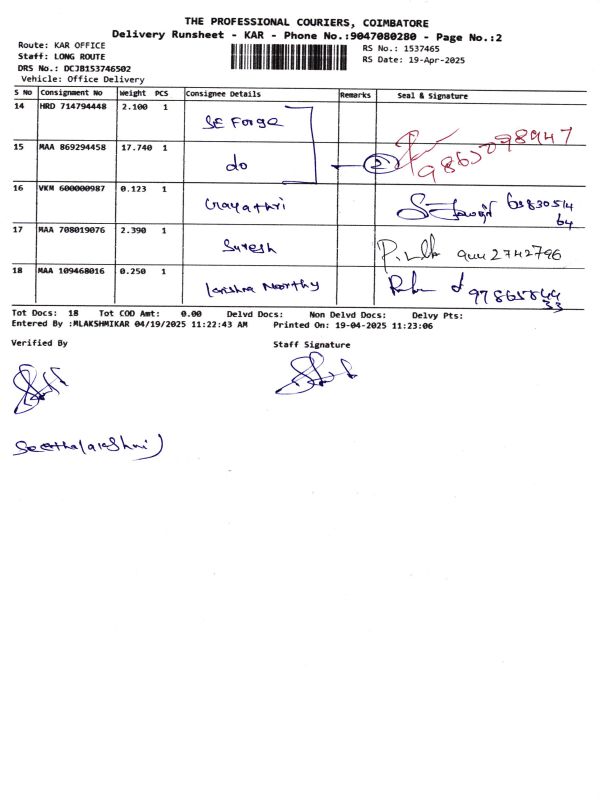 THE PROFESSIONAL COURIERS, COIMBATORE
Delivery Runsheet - KAR - Phone No.:9047080280 - Page No.:2
Route: KAR OFFICE
Staff: LONG ROUTE
DRS No.: DCJB153746502
Vehicle: Office Delivery
RS No.: 1537465
RS Date: 19-Apr-2025
S NO Consignment No Weight PCS Consignee Details Remarks Seal & Signature
14 HRD 714794448 2.100 1 SE Forge
15 MAA 869294458 17.740 1 do 2
16 VKM 600000987 0.123 1 Gayathri
17 MAA 708019076 2.390 1 Suresh
18 MAA 109468016 0.250 1
Tot Docs: 18 Tot COD Amt: 0.00 Delvd Docs: Non Delvd Docs: Delvy Pts:
Entered By :MLAKSHMIKAR 04/19/2025 11:22:43 AM Printed On: 19-04-2025 11:23:06
Verified By Staff Signature